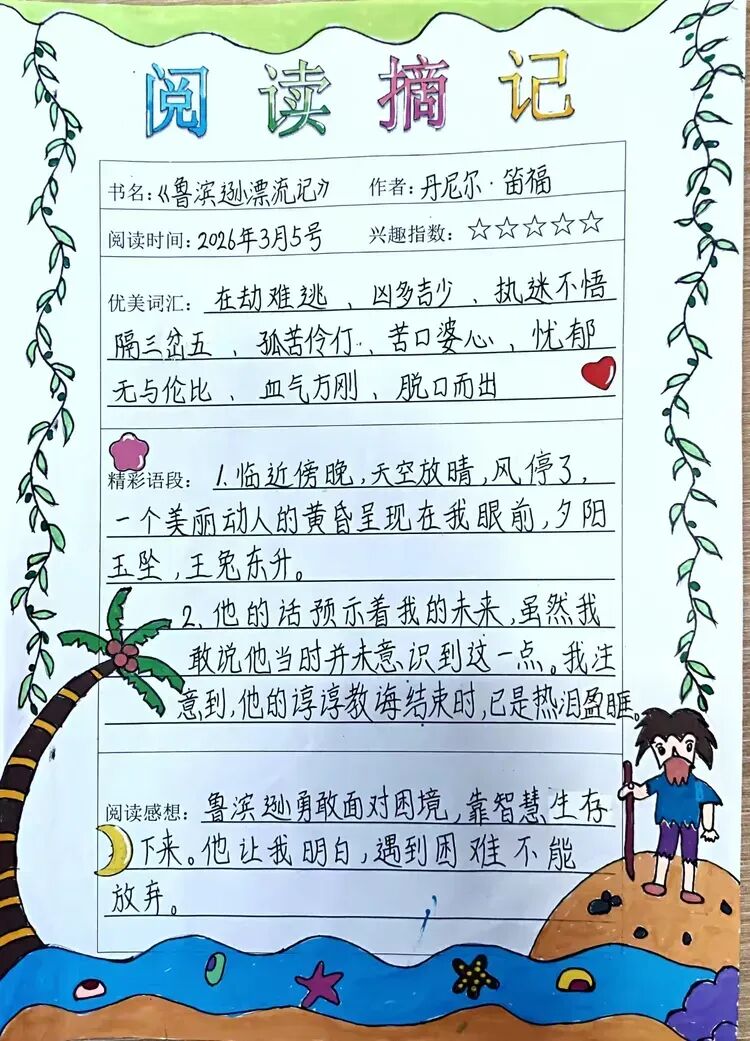 阅读摘记
书名：《鲁滨逊漂流记》 作者：丹尼尔·笛福
阅读时间：2026年3月5号 兴趣指数：☆☆☆☆☆
优美词汇：在劫难逃、凶多吉少、执迷不悟
隔三岔五、孤苦伶仃、苦口婆心、忧郁
无与伦比、血气方刚、脱口而出
精彩语段：1.临近傍晚，天空放晴，风停了，
一个美丽动人的黄昏呈现在我眼前，夕阳
玉坠，王兔东升。
2、他的话预示着我的未来，虽然我
敢说他当时并未意识到这一点。我注
意到，他的谆谆教诲结束时，已是热泪盈眶。
阅读感想：鲁滨逊勇敢面对困境，靠智慧生存
下来。他让我明白，遇到困难不能
放弃。